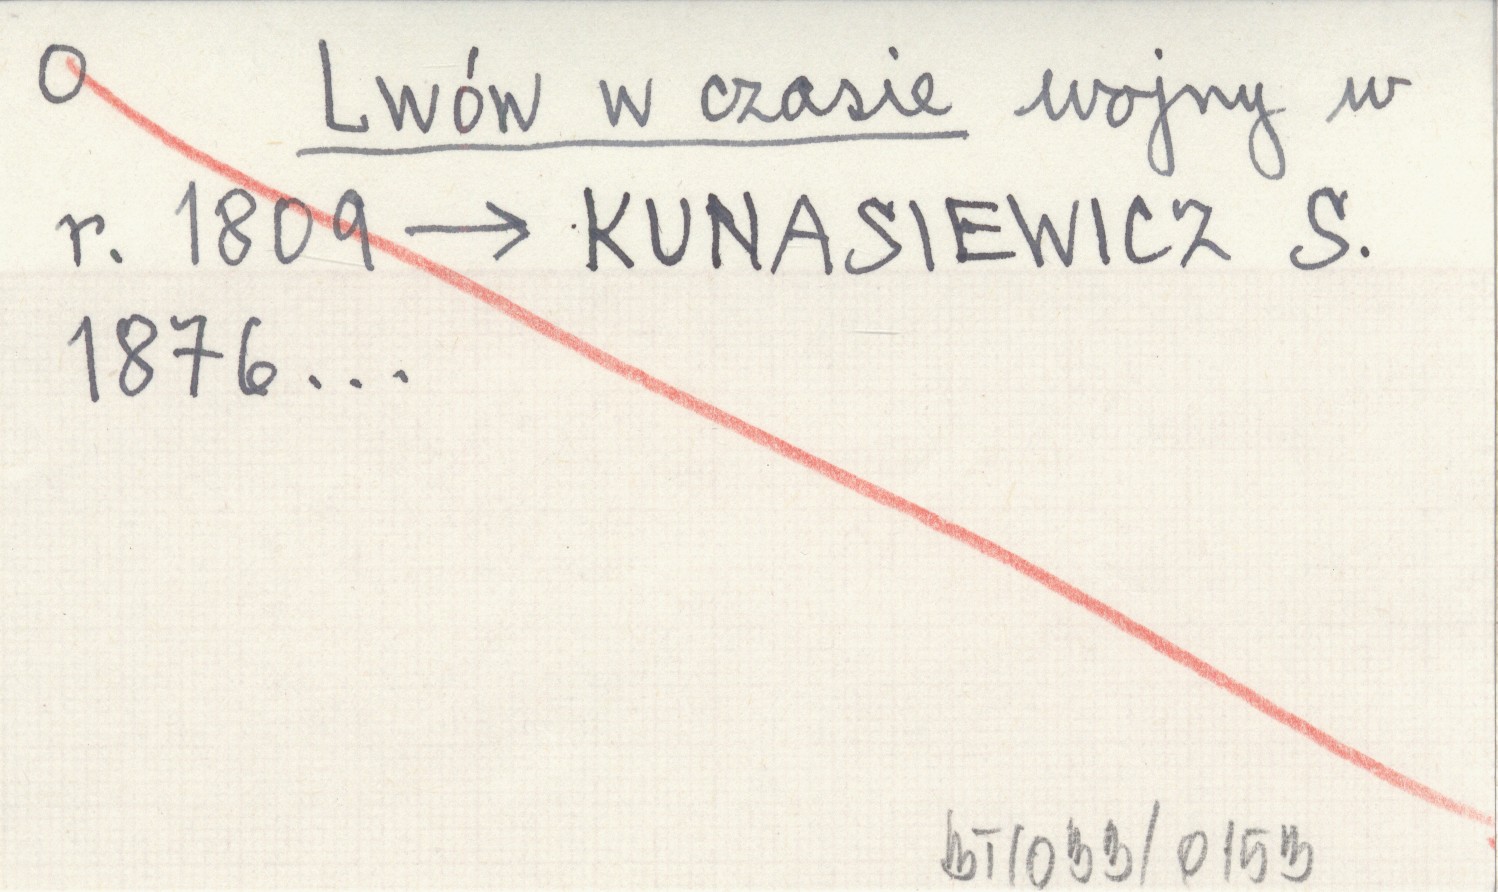 O Lwów w czasie wojny w
r. 1809 → KUNASIEWICZ S.
1876...
BT/033/0153